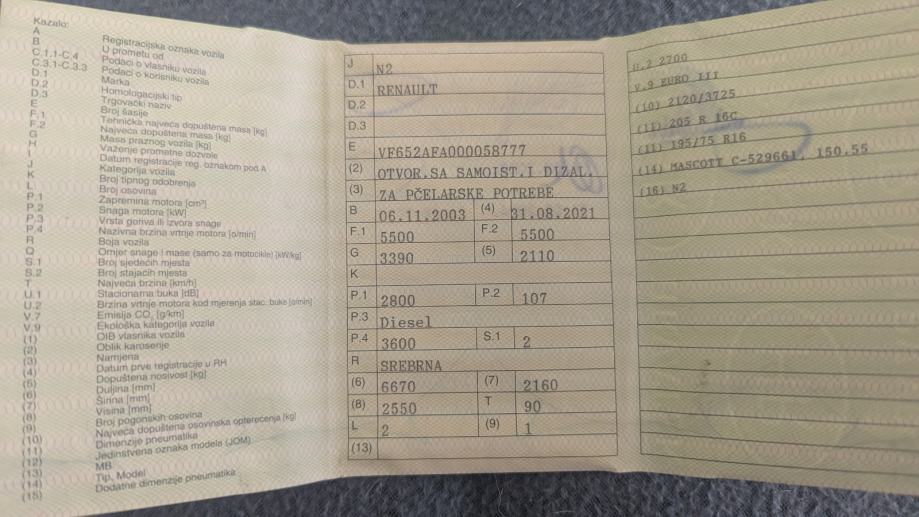 Kazalo:
A Registracijska oznaka vozila
B U prometu od
C.1.1-C.4 Podaci o vlasniku vozila
C.3.1-C.3.3 Podaci o korisniku vozila
D.1 Marka
D.2 Homologacijski tip
D.3 Trgovački naziv
E Broj šasije
F.1 Tehnička najveća dopuštena masa [kg]
F.2 Najveća dopuštena masa [kg]
G Masa praznog vozila [kg]
H Važenje prometne dozvole
I Datum registracije reg. oznakom pod A
J Kategorija vozila
K Broj tipnog odobrenja
L Broj osovina
P.1 Zapremina motora [cm³]
P.2 Snaga motora [kW]
P.3 Vrsta goriva ili izvora snage
P.4 Nazivna brzina vrtnje motora [o/min]
R Boja vozila
Q Omjer snage i mase (samo za motocikle) [kW/kg]
S.1 Broj sjedećih mjesta
S.2 Broj stajaćih mjesta
T Najveća brzina [km/h]
U.1 Stacionarna buka [dB]
U.2 Brzina vrtnje motora kod mjerenja stac. buke [o/min]
V.7 Emisija CO₂ [g/km]
V.9 Ekološka kategorija vozila
(1) OIB vlasnika vozila
(2) Oblik karoserije
(3) Namjena
(4) Datum prve registracije u RH
(5) Dopuštena nosivost [kg]
(6) Duljina [mm]
(7) Širina [mm]
(8) Visina [mm]
(9) Broj pogonskih osovina
(10) Najveća dopuštena osovinska opterećenja [kg]
(11) Dimenzije pneumatika
(12) Jedinstvena oznaka modela (JOM)
(13) MB
(14) Tip, Model
(15) Dodatne dimenzije pneumatika
J N2
D.1 RENAULT
D.2
D.3
E VF652AFA000058777
(2) OTVOR.SA SAMOIST.I DIZAL.
(3) ZA PČELARSKE POTREBE
B 06.11.2003 (4) 31.08.2021
F.1 5500 F.2 5500
G 3390 (5) 2110
K
P.1 2800 P.2 107
P.3 Diesel
P.4 3600 S.1 2
R SREBRNA
(6) 6670 (7) 2160
(8) 2550 T 90
L 2 (9) 1
(13)
U.2 2700
V.9 EURO III
(10) 2120/3725
(11) 205 R 16C
(11) 195/75 R16
(14) MASCOTT C-529661, 150.55
(16) N2